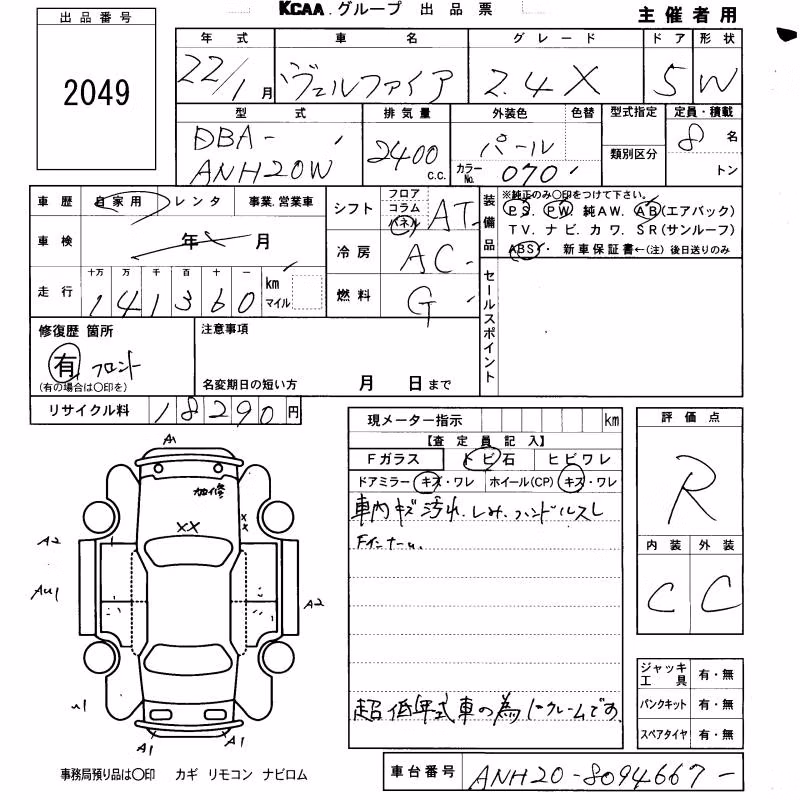 KCAA.グループ 出品票 主催者用
出品番号
2049
年式 車名 グレード ドア 形状
22/1月 ヴェルファイア 2.4X 5 W
型式 排気量 外装色 色替 型式指定 定員・積載
DBA-
ANH20W
2400 c.c.
パール
カラーNo. 070
類別区分
8名
トン
車歴 自家用 レンタ 事業.営業車
車検 年 月
走行 十万 万 千 百 十 一
141360 km
マイル
シフト フロア コラム パネル AT
冷房 AC
燃料 G
装備品
※純正のみ○印をつけて下さい。
PS. PW. 純AW. AB(エアバック)
TV. ナビ. カワ. SR(サンルーフ)
ABS・ 新車保証書←(注)後日送りのみ
セールスポイント
修復歴 箇所
有 フロント
(有の場合は○印を)
注意事項
名変期日の短い方 月 日まで
リサイクル料 18290円
現メーター指示 km
【査定員記入】
Fガラス トビ石 ヒビワレ
ドアミラー キズ・ワレ ホイール(CP) キズ・ワレ
車内キズ汚れ.しみ.ハンドルスレ
Fインナー
超低年式車の為ノークレームです
評価点
R
内装 外装
C C
ジャッキ工具 有・無
パンクキット 有・無
スペアタイヤ 有・無
A1
加修
XX
XX
A2
AU1
A2
A1 A1
事務局預り品は○印 カギ リモコン ナビロム
車台番号 ANH20-8094667